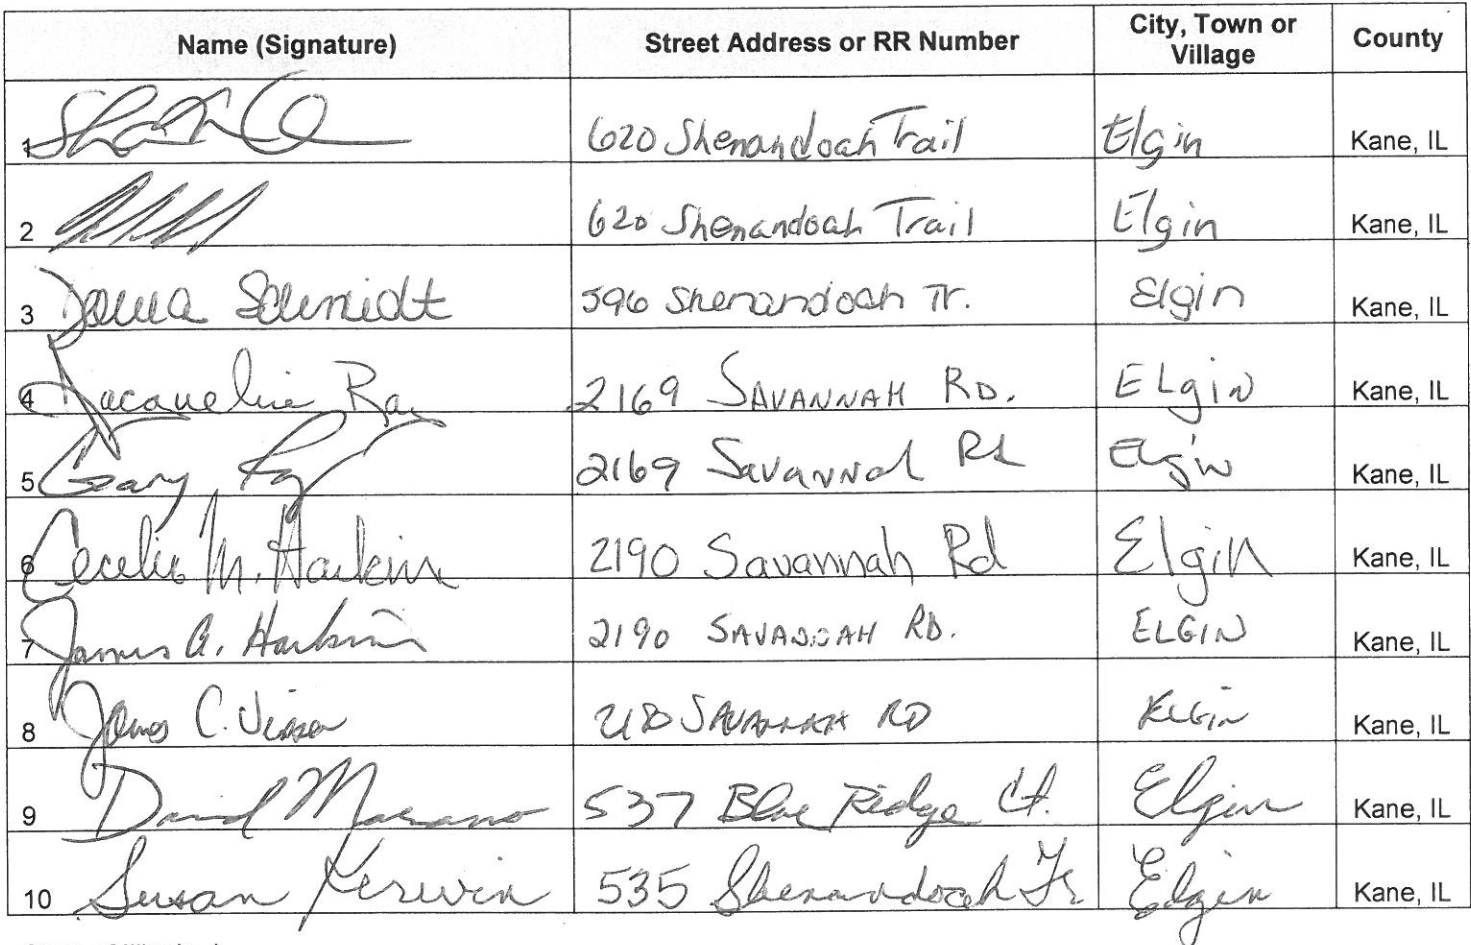 Name (Signature) Street Address or RR Number City, Town or Village County
1 620 Shenandoah Trail Elgin Kane, IL
2 620 Shenandoah Trail Elgin Kane, IL
3 Donna Schmidt 596 Shenandoah Tr. Elgin Kane, IL
4 Jacqueline Ray 2169 SAVANNAH RD. ELgin Kane, IL
5 Gary Ray 2169 Savannah Rd Elgin Kane, IL
6 Cecelia M. Harkin 2190 Savannah Rd Elgin Kane, IL
7 James A. Harkin 2190 SAVANNAH RD. ELGIN Kane, IL
8 James C. SAVANNAH RD ELGin Kane, IL
9 David Marano 537 Blue Ridge Ct. Elgin Kane, IL
10 Susan Kerwin 535 Shenandoah Tr Elgin Kane, IL